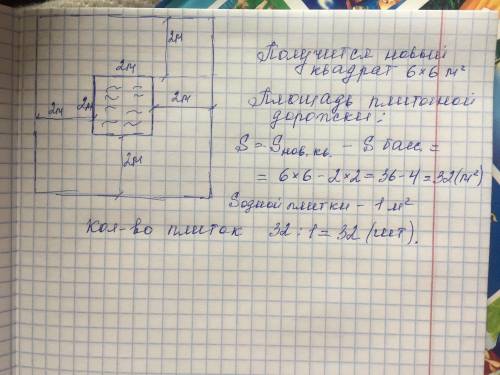 2м
2м
2м
2м
2м
2м
Получится новый
квадрат 6×6 м²
Площадь плиточной
дорожки:
S = Sнов.кв. - S басс =
= 6×6 - 2×2 = 36 - 4 = 32 (м²)
Sодной плитки - 1 м²
Кол-во плиток 32 : 1 = 32 (шт).